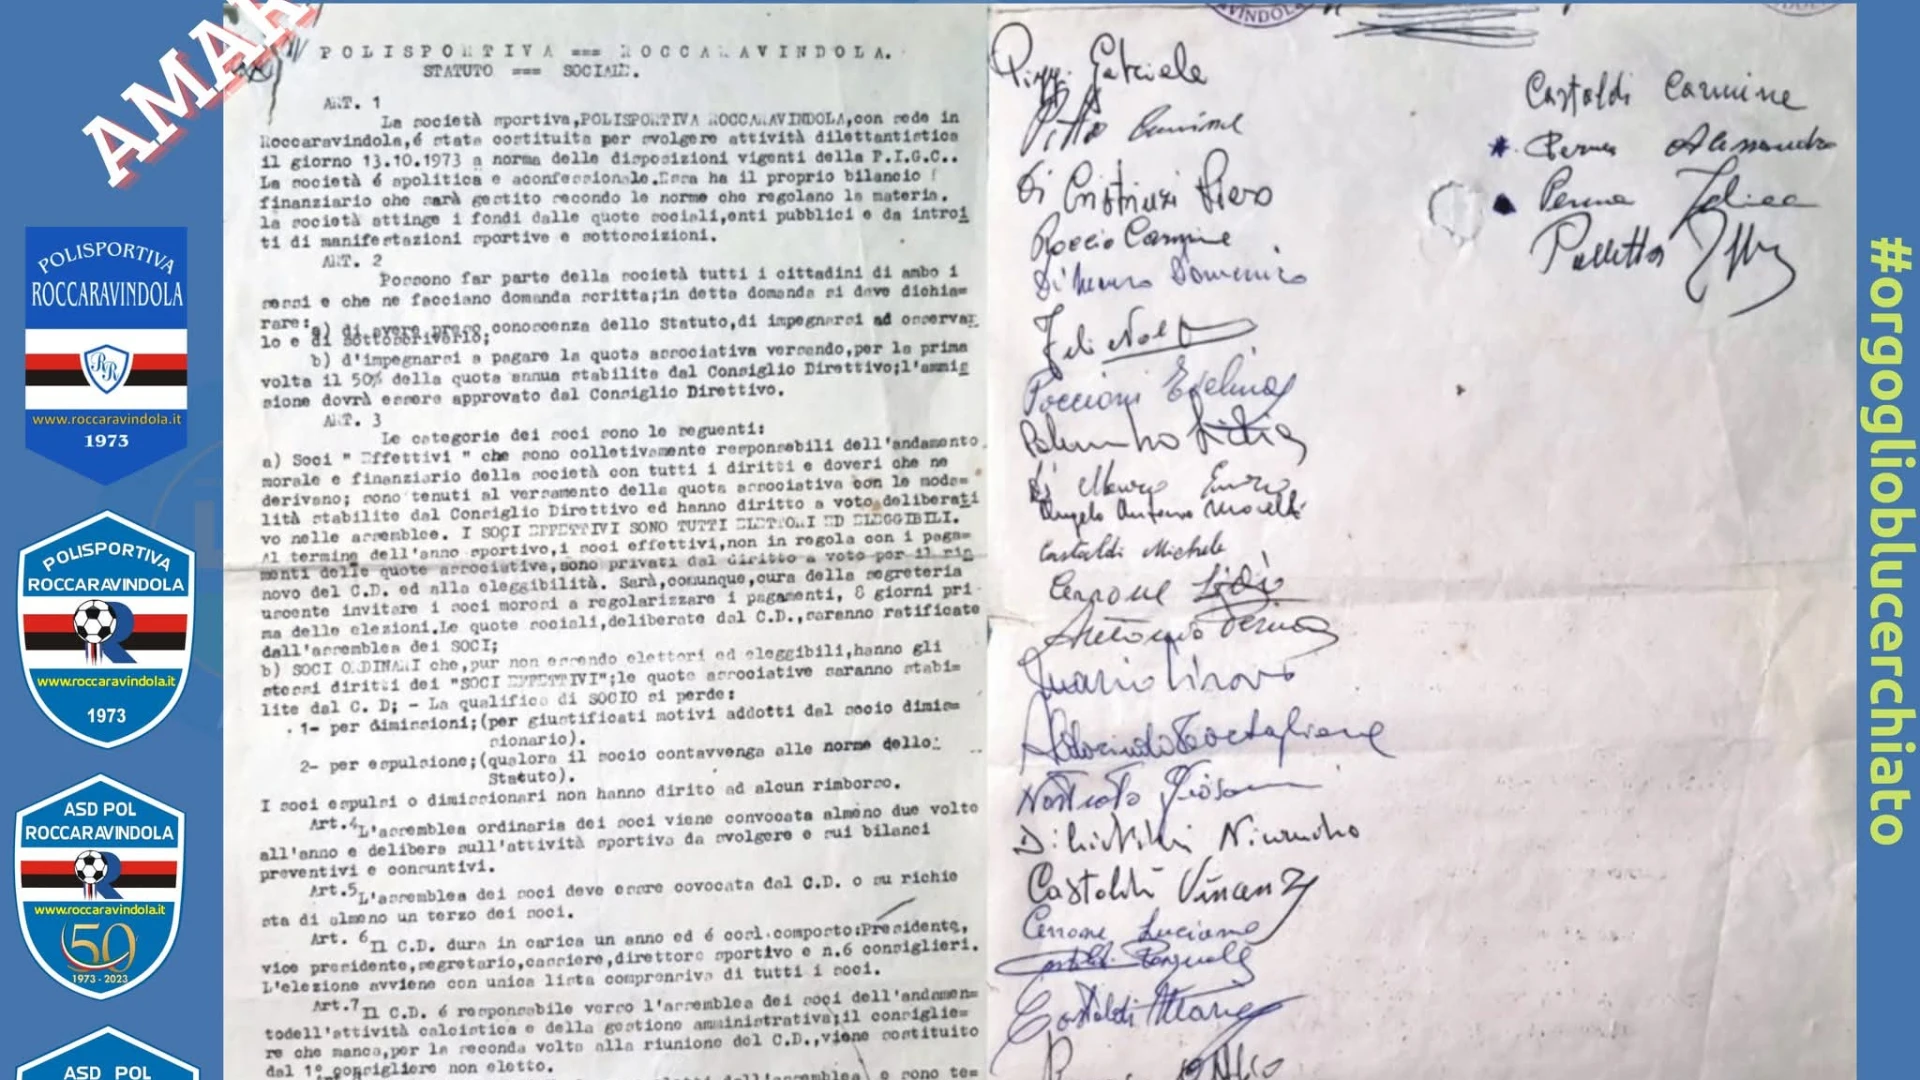 AMAR
POLISPORTIVA
ROCCARAVINDOLA
www.roccaravindola.it
1973
POLISPORTIVA
ROCCARAVINDOLA
www.roccaravindola.it
1973
ASD POL
ROCCARAVINDOLA
www.roccaravindola.it
50
1973 - 2023
ASD POL
POLISPORTIVA === ROCCARAVINDOLA.
STATUTO === SOCIALE.
ART. 1
La società sportiva,POLISPORTIVA ROCCARAVINDOLA,con sede in
Roccaravindola,é stata costituita per svolgere attività dilettantistica
il giorno 13.10.1973 a norma delle disposizioni vigenti della F.I.G.C..
La società é apolitica e aconfessionale.Essa ha il proprio bilancio
finanziario che sarà gestito secondo le norme che regolano la materia.
la società attinge i fondi dalle quote sociali,enti pubblici e da introi
ti di manifestazioni sportive e sottoscizioni.
ART. 2
Possono far parte della società tutti i cittadini di ambo i
sessi e che ne facciano domanda scritta;in detta domanda si deve dichia=
rare:
a) di avere preso conoscenza dello Statuto,di impegnarsi ad osservar
lo e di sottoscriverlo;
b) d'impegnarsi a pagare la quota associativa versando,per la prima
volta il 50% della quota annua stabilita dal Consiglio Direttivo;l'ammis
sione dovrà essere approvato dal Consiglio Direttivo.
ART. 3
Le categorie dei soci sono le seguenti:
a) Soci " Effettivi " che sono colletivamente responsabili dell'andamento
morale e finanziario della società con tutti i diritti e doveri che ne
derivano; sono tenuti al versamento della quota associativa con le moda=
lità stabilite dal Consiglio Direttivo ed hanno diritto a voto deliberati
vo nelle assemblee. I SOCI EFFETTIVI SONO TUTTI ELETTORI ED ELEGGIBILI.
Al termine dell'anno sportivo,i soci effettivi,non in regola con i paga=
menti delle quote associative,sono privati dal diritto a voto per il rin
novo del C.D. ed alla eleggibilità. Sarà,comunque,cura della segreteria
uscente invitare i soci morosi a regolarizzare i pagamenti, 8 giorni pri
ma delle elezioni.Le quote sociali,deliberate dal C.D.,saranno ratificate
dall'assemblea dei SOCI;
b) SOCI ORDINARI che,pur non essendo elettori ed eleggibili,hanno gli
stessi diritti dei "SOCI EFFETTIVI";le quote associative saranno stabi=
lite dal C. D; - La qualifica di SOCIO si perde:
1- per dimissioni;(per giustificati motivi addotti dal socio dimis=
sionario).
2- per espulsione;(qualora il socio contavvenga alle norme dello
Statuto).
I soci espulsi o dimissionari non hanno dirito ad alcun rimborso.
Art.4 L'assemblea ordinaria dei soci viene convocata almeno due volte
all'anno e delibera sull'attività sportiva da svolgere e sui bilanci
preventivi e consuntivi.
Art.5 L'assemblea dei soci deve essre covocata dal C.D. o su richie
sta di almeno un terzo dei soci.
Art. 6 Il C.D. dura in carica un anno ed é così composto:Presidente,
vice presidente,segretario,cassiere,direttore sportivo e n.6 consiglieri.
L'elezione avviene con unica lista comprensiva di tutti i soci.
Art.7 Il C.D. é responsabile verso l'assemblea dei soci dell'andamen=
todell'attività calcistica e della gestione amministrativa;il consiglie=
re che manca,per la seconda volta alla riunione del C.D.,viene sostituito
dal 1° consigliere non eletto.
dell'assemblea e sono te=
Gabriele
Piero
Roccio Carmine
Di Mauro Domenico
Angelo Antonio Morelli
Castaldi Michele
Cerrone
Antonio Perna
Castaldi Vincenzo
Cerrone Luciano
Castaldi
Castaldi Carmine
Perna Alessandro
Perna
Palletta
#orgoglioblucerchiato